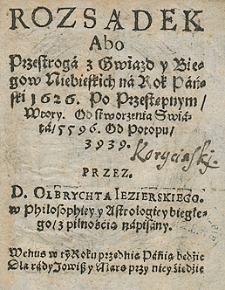 ROZSĄDEK
Abo
Przestroga z Gwiazd y Bie-
gow Niebieskich na Rok Pań-
ski 1626. Po Przestępnym/
Wtory. Od stworzenia Swiá-
tá/ 5596. Od Potopu/
3939.
Koryciński
PRZEZ.
D. OLBRYCHTA IEZIERSKIEGO.
w Philosophiey y Astrologiey biegłe-
go/ z pilnością nápisány.
Wenus w tyṁ Roku przednia Pánią będzie
Dla rády Iowisz y Mars przy niey siędzie